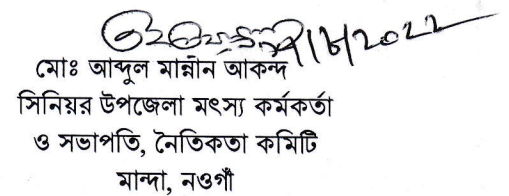 মোঃ আব্দুল মান্নান আকন্দ
সিনিয়র উপজেলা মৎস্য কর্মকর্তা
ও সভাপতি, নৈতিকতা কমিটি
মান্দা, নওগাঁ